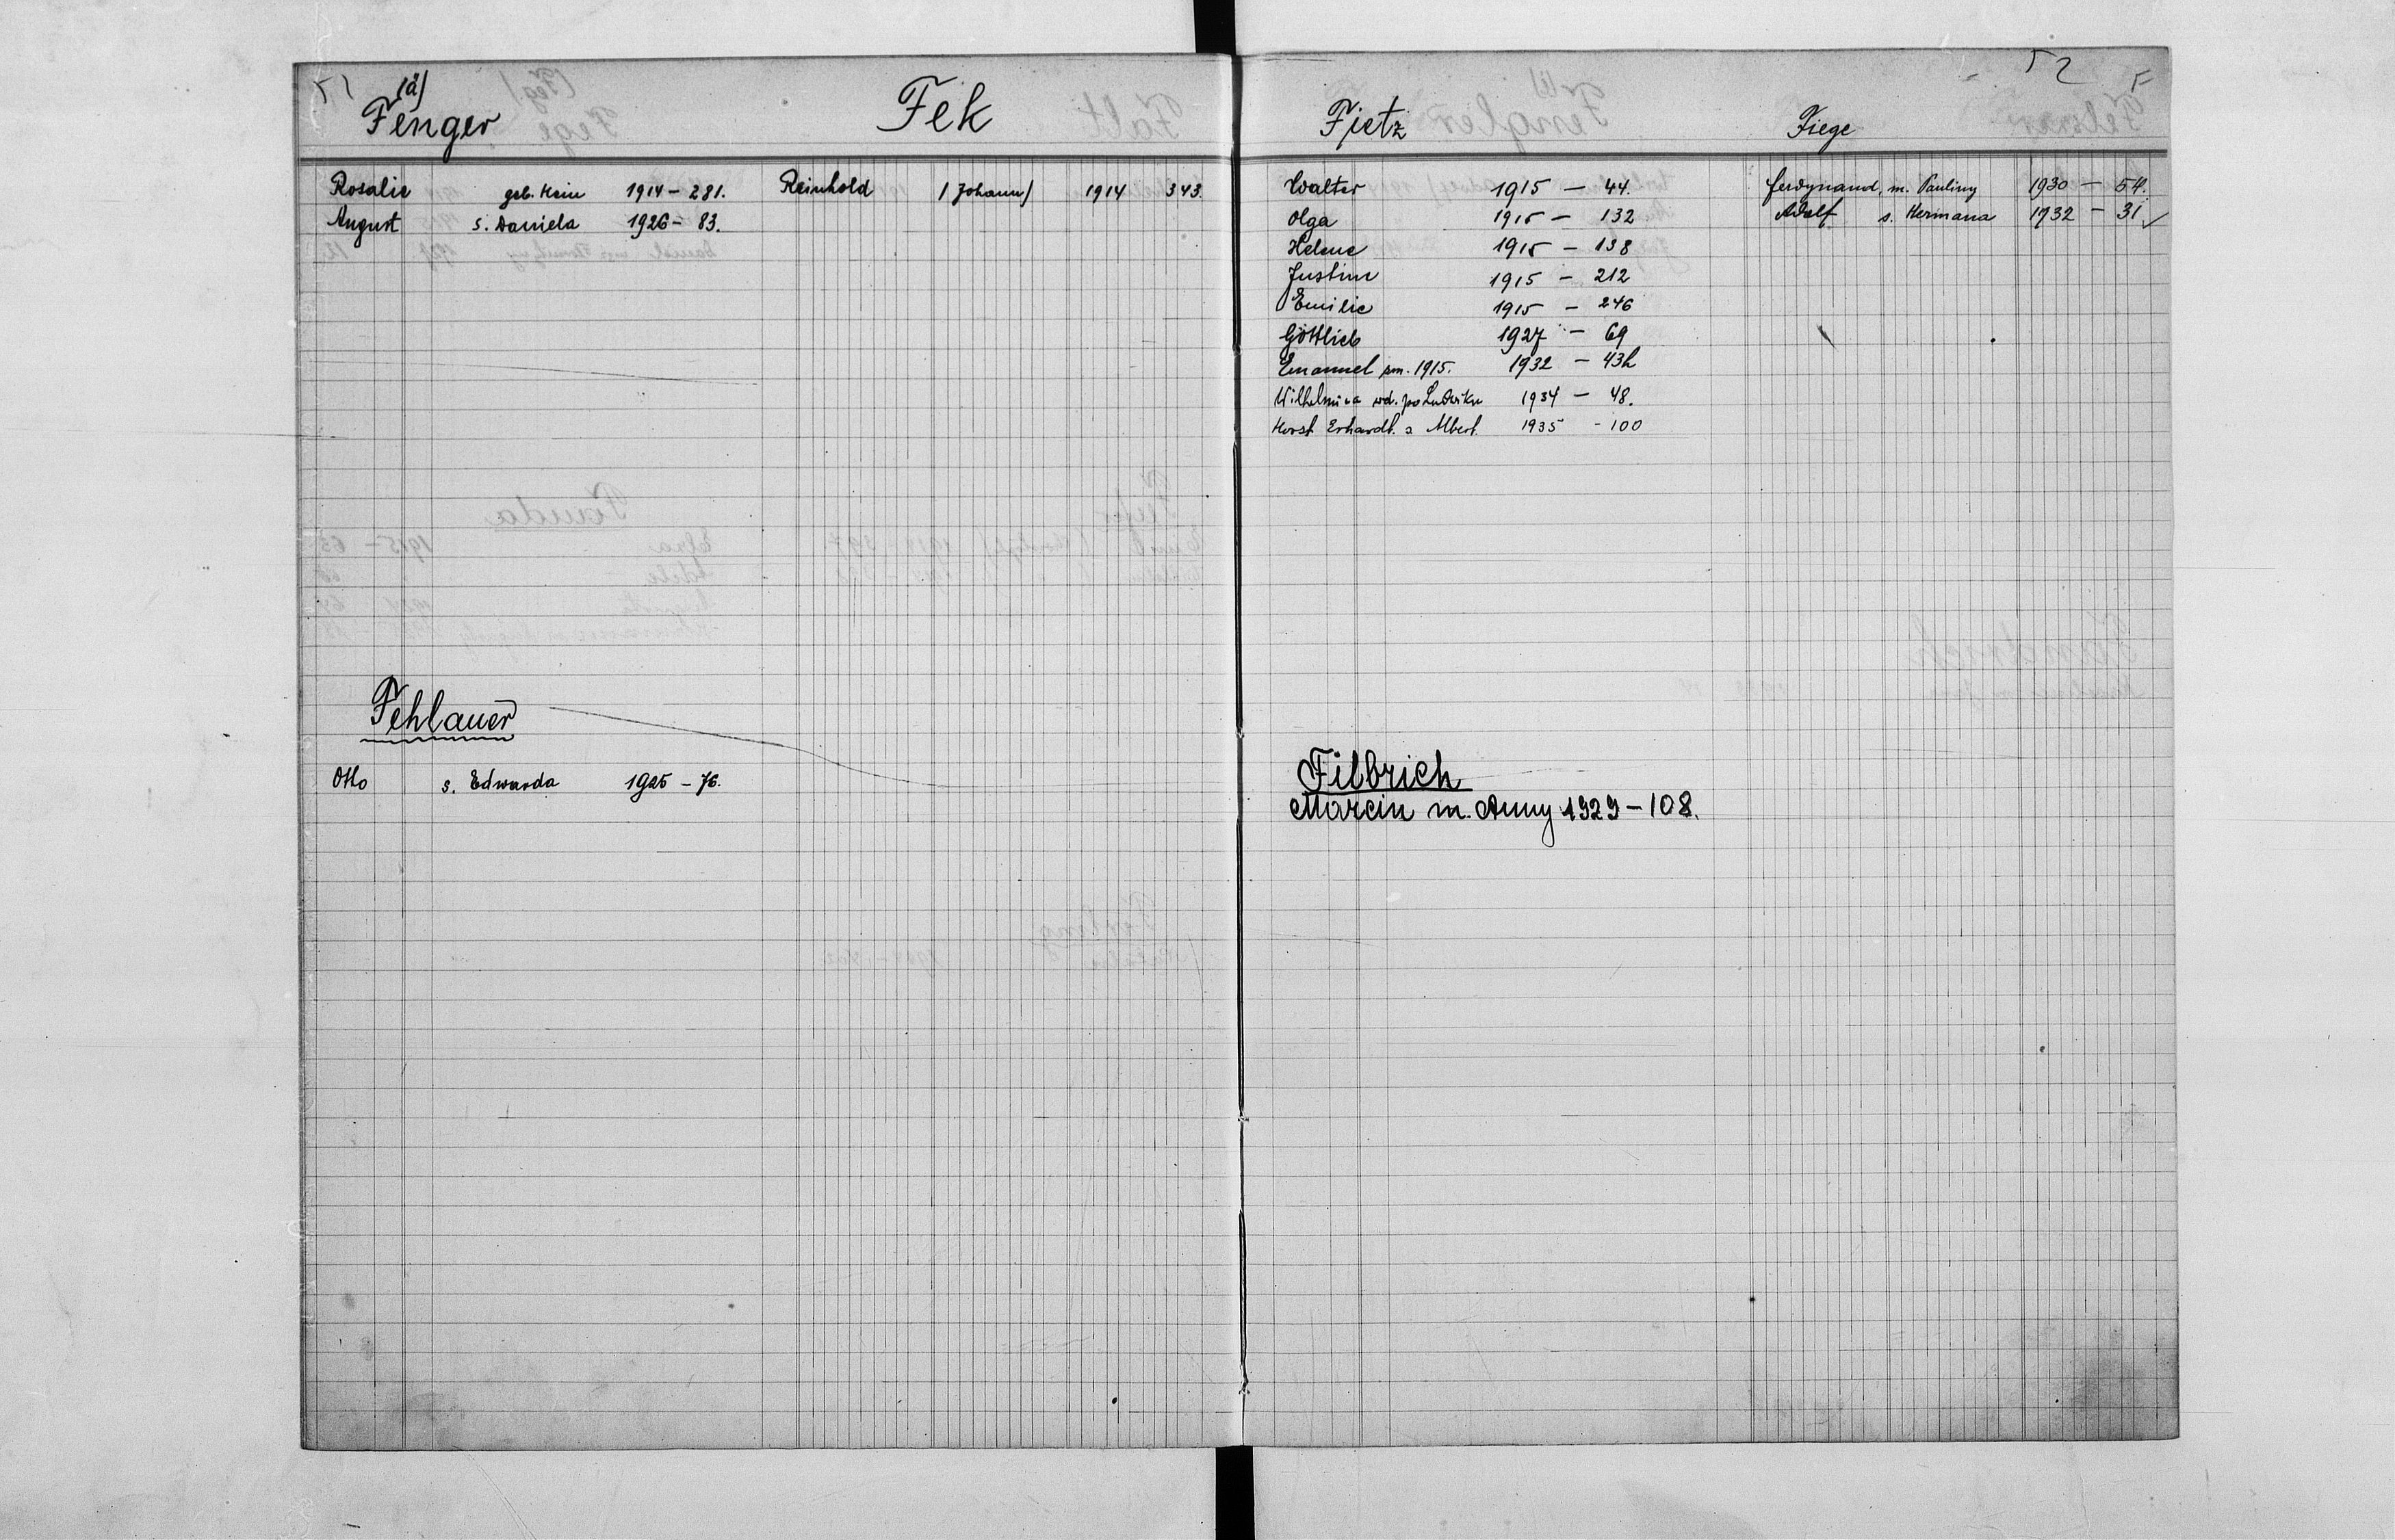 51
(ä)
Fenger
Rosalie geb. Hein 1914 – 281.
August s. Daniela 1926 – 83.
Fehlauer
Otto s. Edwarda 1925 – 76.
Fek
Reinhold / Johann / 1914 343.
52 F
Fietz
Walter 1915 – 44.
Olga 1915 – 132
Helene 1915 – 138
Justine 1915 – 212
Emilie 1915 – 246
Gottlieb 1927 – 69
Emanuel zm. 1915. 1932 – 43h
Wilhelmina wd. po Ludwiku 1934 – 48.
Horst Erhardt. s Albert. 1935 – 100
Filbrich
Marcin m. Anny 1929 – 108.
Fiege
Ferdynand, m. Pauliny 1930 – 54.
Adolf s. Hermana 1932 – 31 ✓